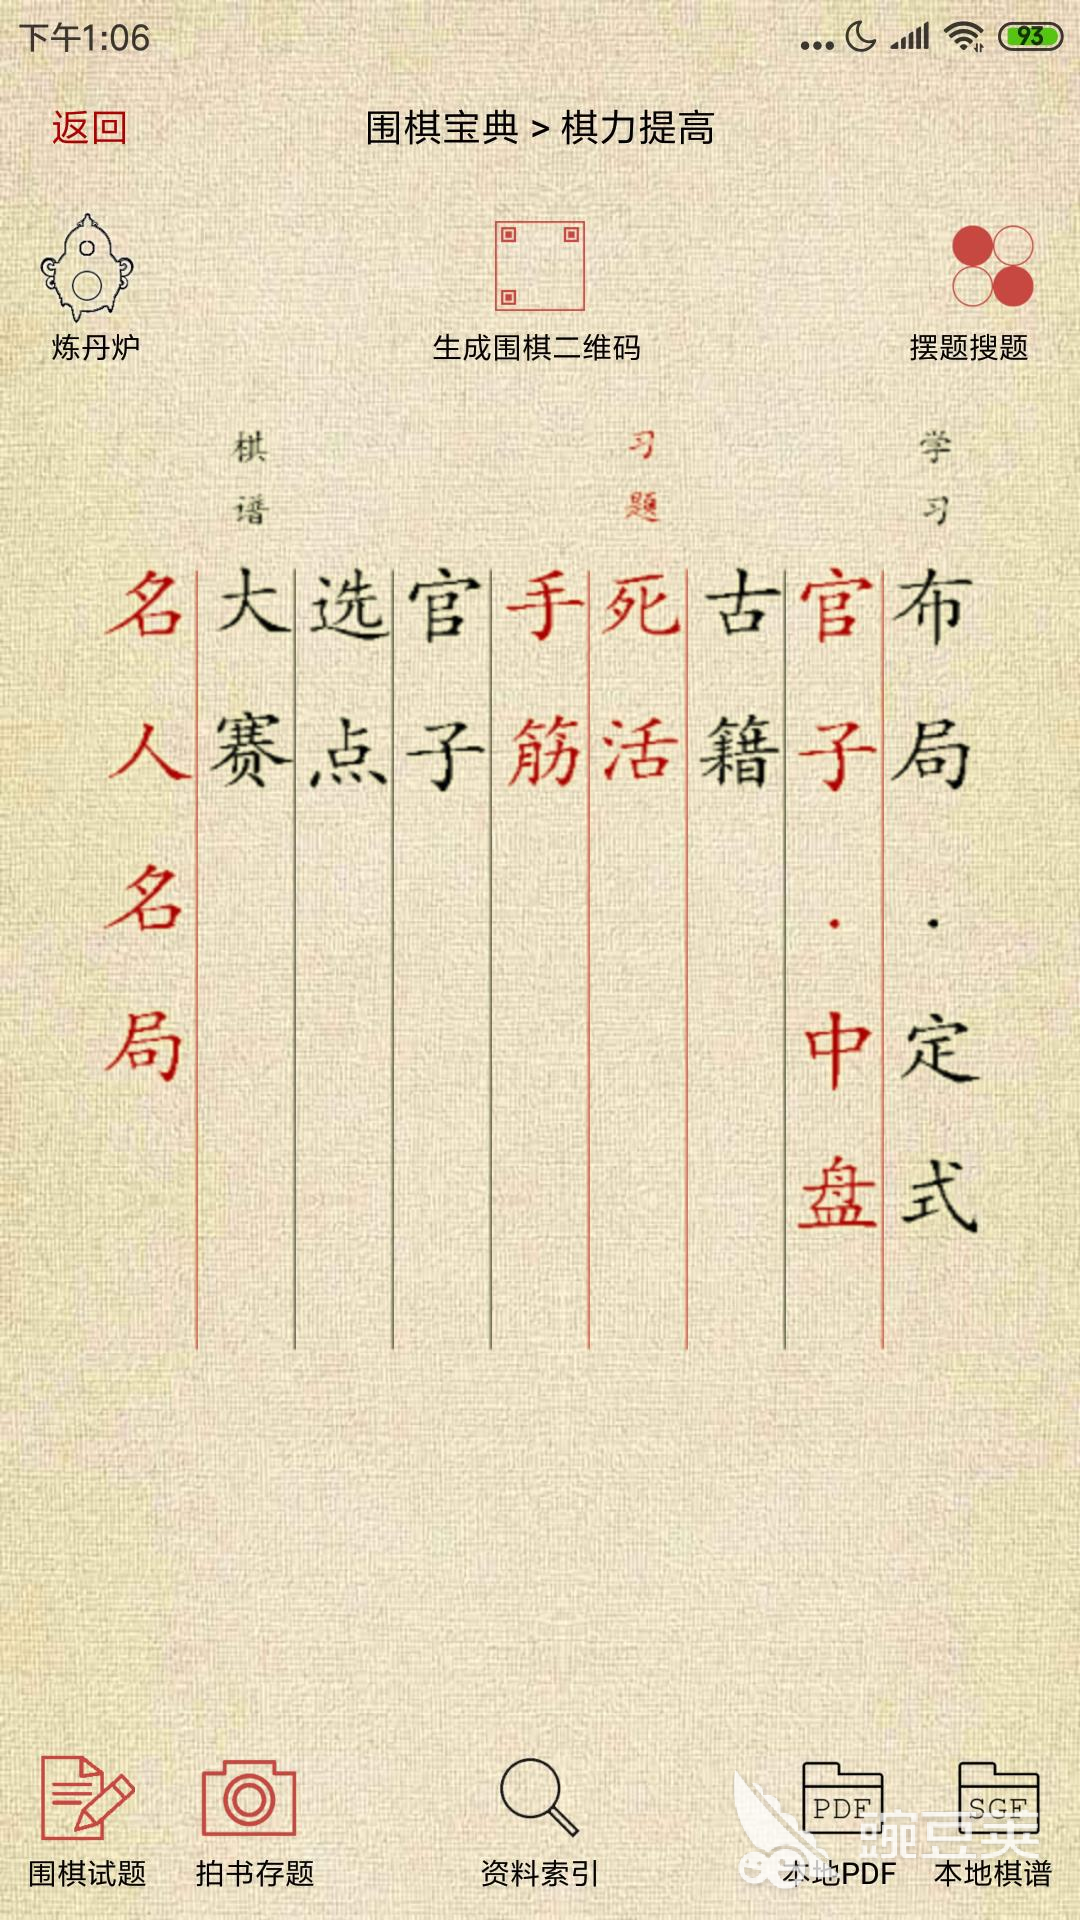 下午1:06
93
返回
围棋宝典 > 棋力提高
炼丹炉
生成围棋二维码
摆题搜题
学习
习题
棋谱
布局.定式
官子.中盘
古籍
死活
手筋
官子
选点
大赛
名人名局
PDF
SGF
豌豆荚
围棋试题
拍书存题
资料索引
本地PDF
本地棋谱